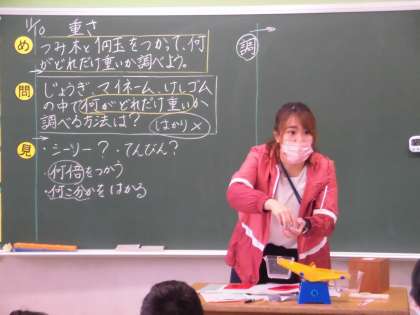 11/10 重さ
め つみ木と1円玉をつかって、何
がどれだけ重いか調べよう。
問 じょうぎ、マイネーム、けしゴム
の中で何がどれだけ重いか
調べる方法は？ はかり×
見 ・シーソー？・てんびん？
・何倍をつかう
・何こ分かをはかる
調